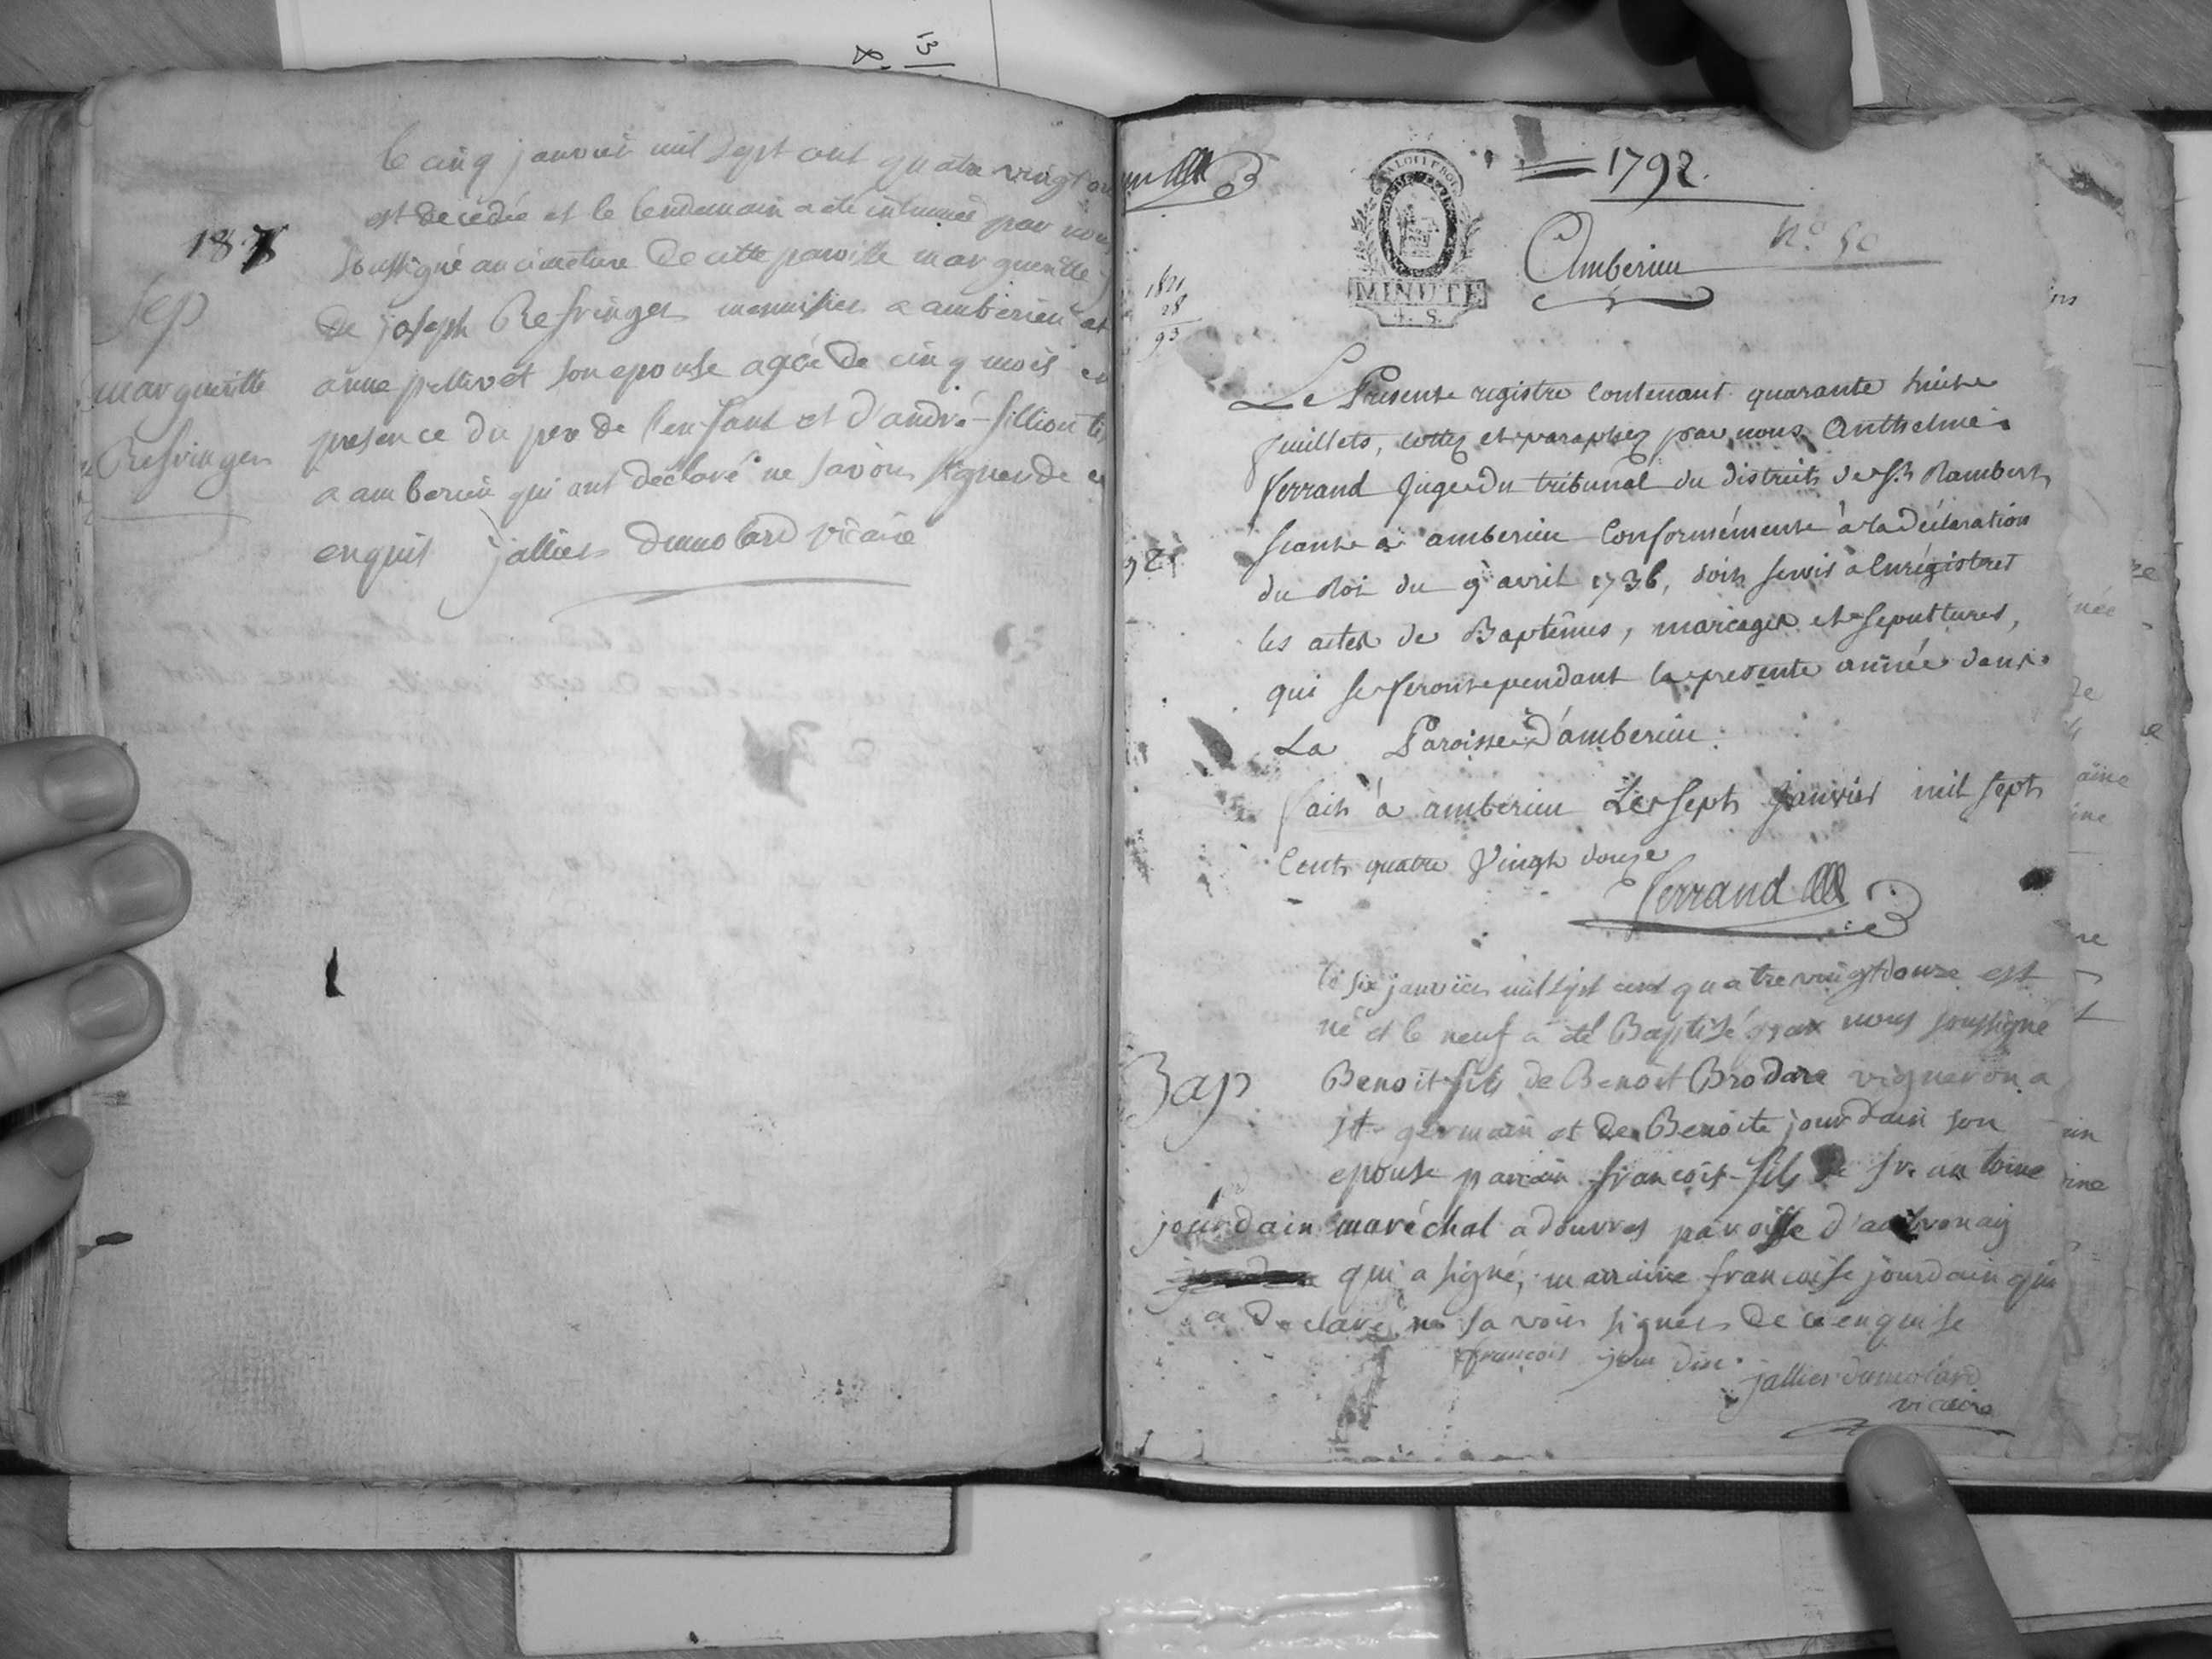 13
le cinq janvier mil sept cent quatre vingt
est decedée et le lendemain a été inhumée par nous
soussigné au cimetiere de cette paroisse marguerite
de joseph Refringer menuisier a amberieu et
anne pellivet son epouse agée de cinq mois en
presence du pere de l'enfant et d'andré fillion
a amberieu qui ont declaré ne savoir signer de ce
enquis jallier dumolard vicaire
187
Sep
marguerite
Refringer
1792.
Amberieu
N.º 50
LA LOI LE ROI
MINUTE
4. S.
Le Present registre Contenant quarante huit
feuillets, cottez et paraphez par nous Anthelme
ferrand Juge du tribunal du district de St. Rambert
seant a amberieu Conformément à la déclaration
du Roi du 9 avril 1736, doit servir à Enrégistrer
les actes de Baptêmes, mariages et sepultures,
qui se feront pendant la presente année dans
La Paroisse d'amberieu.
fait à amberieu Le sept Janvier mil sept
Cent quatre Vingt douze
ferrand
Bap
le six janvier mil sept cent quatre vingt douze est
né et le neuf a été Baptisé par nous soussigné
Benoit fils de Benoit Brodare vigneron a
st germain et de Benoite jourdain son
epouse parain francois fils de sr. antoine
jourdain maréchal a douvres paroisse d'ambronay
qui a signé, marraine francoise jourdain qui
a declaré ne savoir signer de ce enquise
francois jourdin
jallier dumolard
vicaire